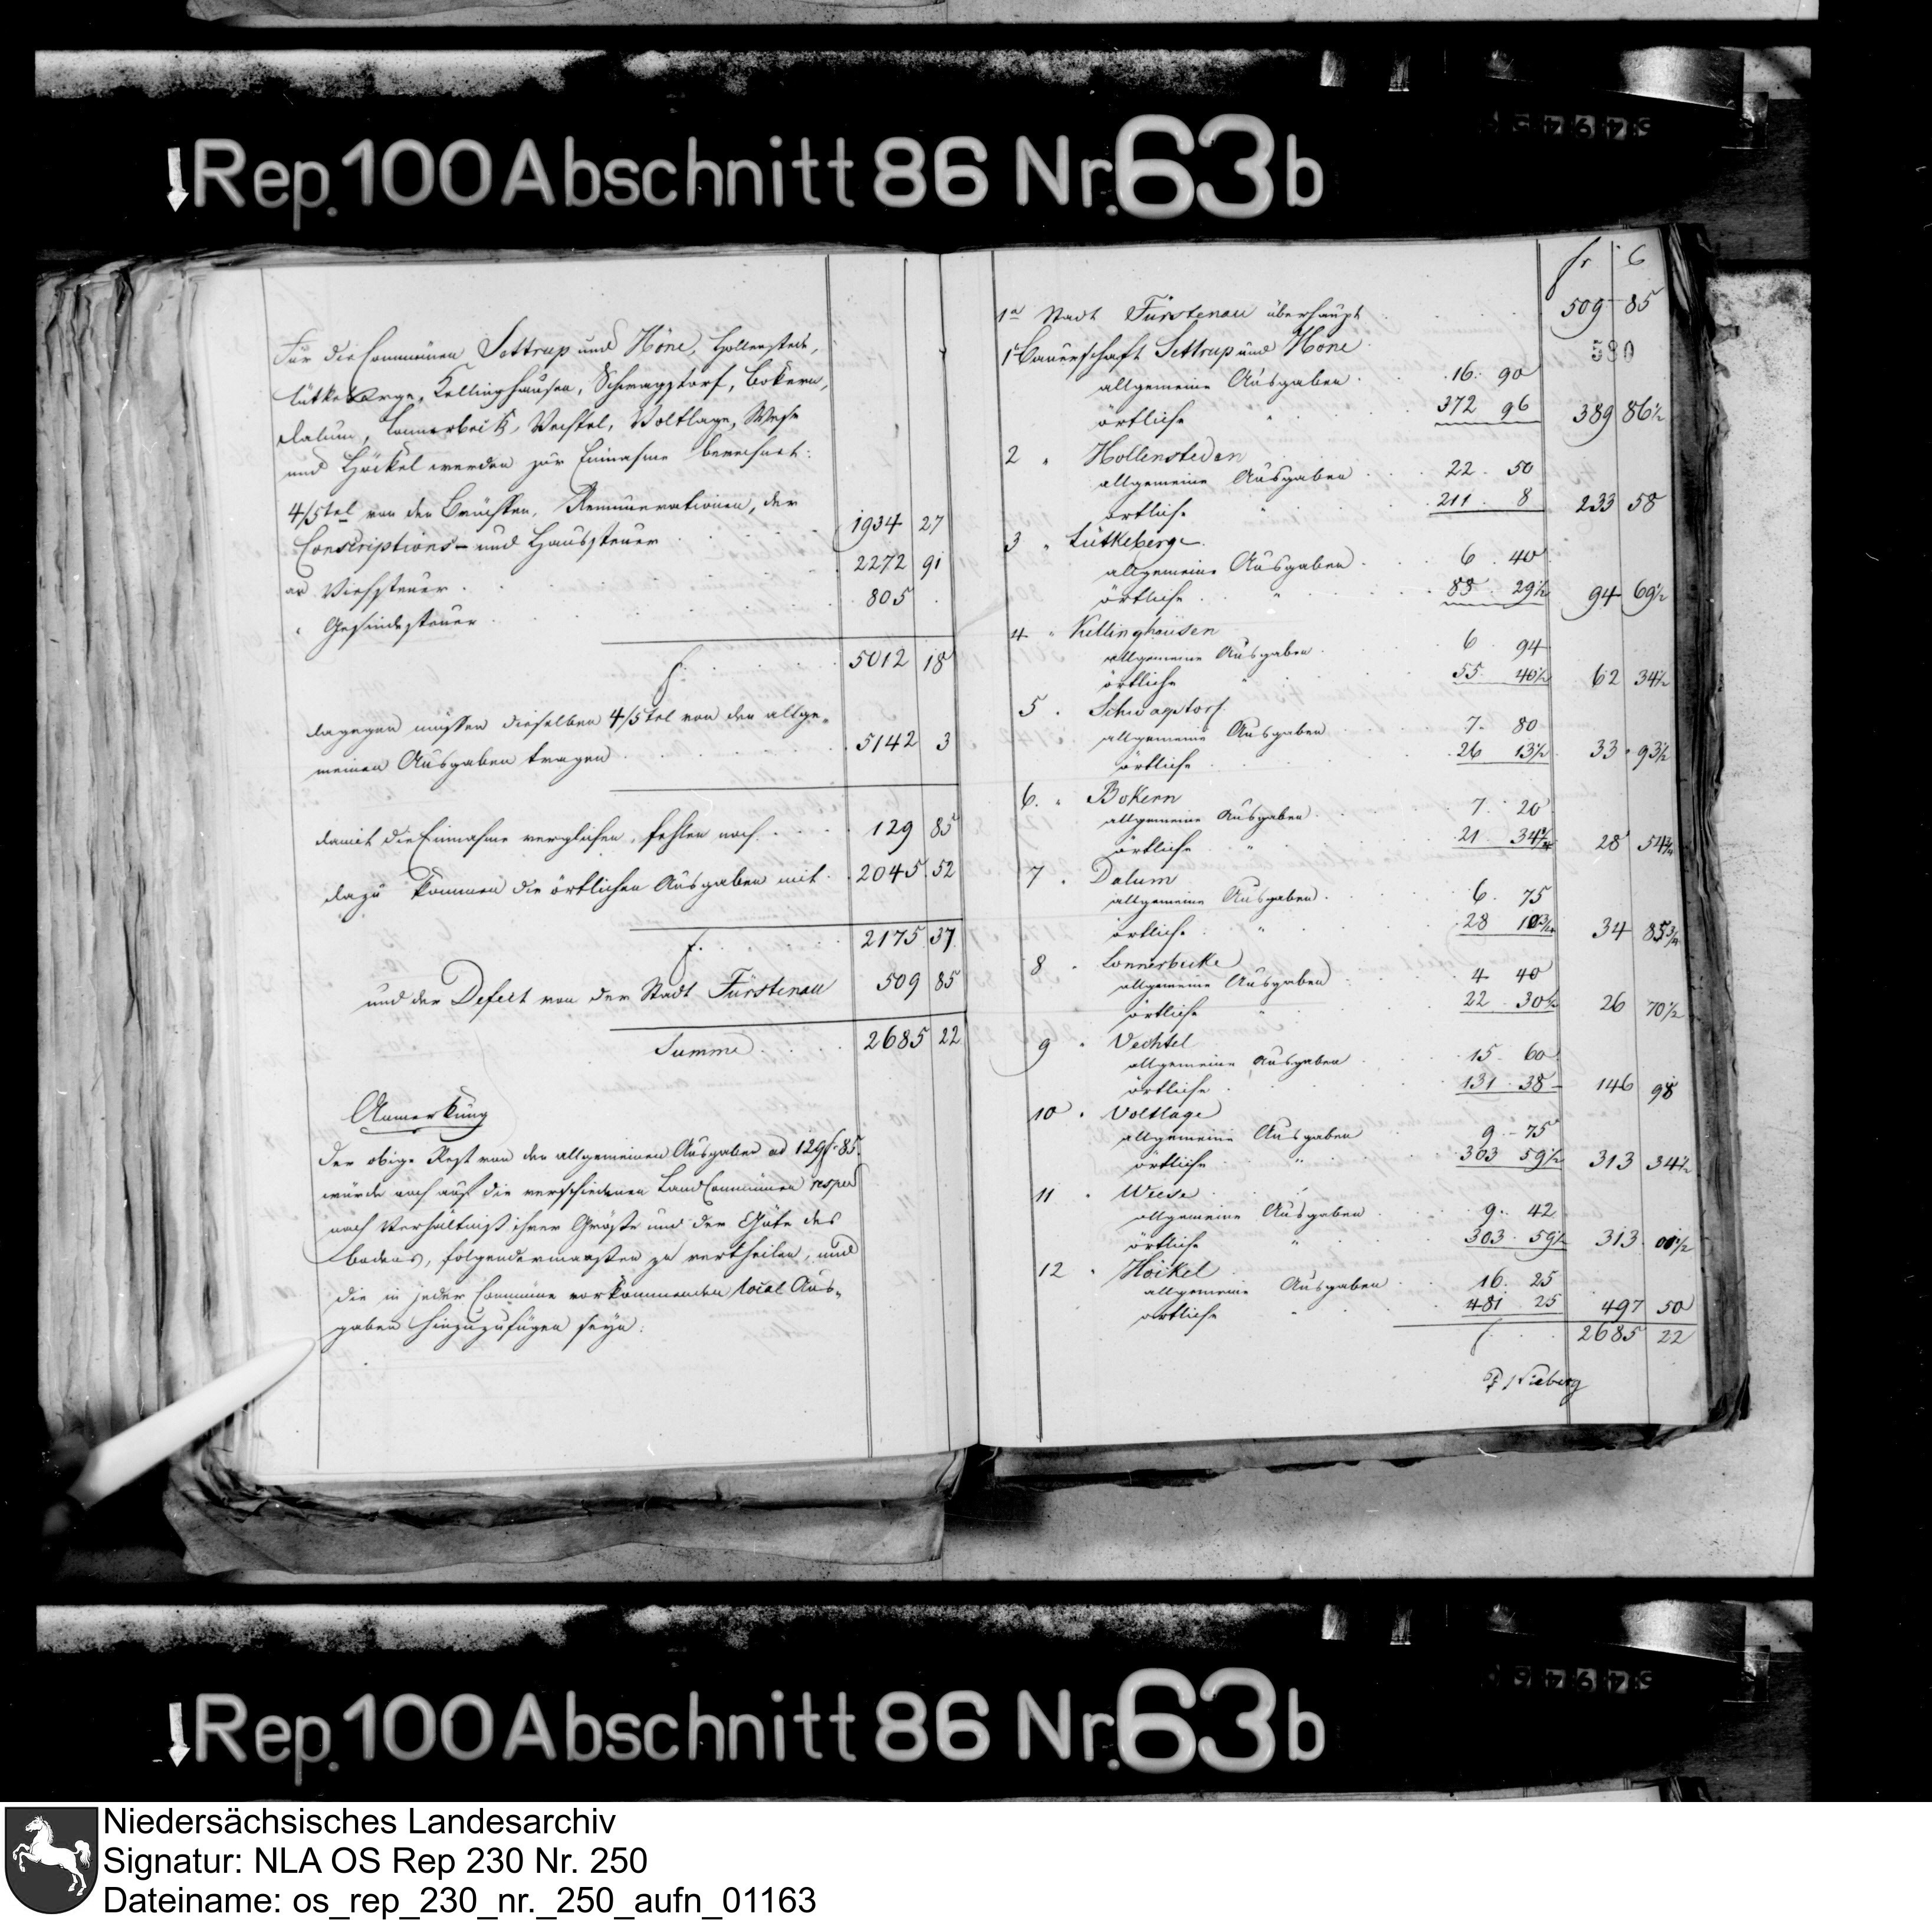 Rep. 100 Abschnitt 86 Nr. 63b
Für die Communen Settrup und Höne, Hollenstede,
Lütkeberge, Kellinghausen, Schwagstorf, Bokern,
Dalum, Lonnerbeck, Vechtel, Voltlage, Weese
und Höckel werden zur Einnahme berechnet:
4/5tel von den Brüchten, Remunerationen, der
Conscriptions- und Haussteuer . . . 1934 27
an Viehsteuer . . . 2272 91
" Gesindesteuer . . . 805 .
S. . . . 5012 18
dagegen müssen dieselben 4/5tel von den allge-
meinen Ausgaben tragen . . . 5142 3
damit die Einnahme verglichen, fehlen noch . . . 129 85
dazu kommen die örtlichen Ausgaben mit . . 2045 52
S. . . . 2175 37
und der Defect von der Stadt Fürstenau 509 85
Summe . . . 2685 22
Anmerkung
Der obige Rest von den allgemeinen Ausgaben ad 129 fr 85
würde noch auf die verschiedenen Land Communen
nach Verhältniß ihrer Größe und der Güte des
Bodens, folgendermaaßen zu vertheilen, und
die in jeder Commune vorkommenden local Aus-
gaben hinzuzufügen seyn:
fr C
1a Stadt Fürstenau überhaupt . . . 509 85
580
1 Bauerschaft Settrup und Höne
allgemeine Ausgaben . . . 16. 90
örtliche " . . . 372 96 389 86½
2 " Hollensteden
allgemeine Ausgaben . . . 22. 50
örtliche " . . . 211. 8 233 58
3 " Lütkeberge
allgemeine Ausgaben . . . 6. 40
örtliche " . . . 88. 29½ 94 69½
4 " Kellinghausen
allgemeine Ausgaben . . . 6. 94
örtliche " . . . 55. 40½ 62 34½
5 . Schwagstorf
allgemeine Ausgaben . . . 7. 80
örtliche . . . 26 13½ 33 93½
6. " Bokern
allgemeine Ausgaben . . . 7. 20
örtliche " . . . 21 28
7 . Dalum
allgemeine Ausgaben . . . 6. 75
örtliche " . . . 28 34
8 . Lonnerbecke
allgemeine Ausgaben . . . 4 40
örtliche " . . . 22. 30½ 26 70½
9 " Vechtel
allgemeine Ausgaben . . . 15. 60
örtliche . . . 131. 38 146 98
10 . Voltlage
allgemeine Ausgaben . . . 9 - 75
örtliche " . . . 303 59½ 313 34½
11 . Weese
allgemeine Ausgaben . . . 9. 42
örtliche " . . . 303. 59½ 313 01½
12 " Höckel
allgemeine Ausgaben . . . 16. 25
örtliche " . . . 481 25 497 50
S. . . . 2685 22
Nieberg
Rep. 100 Abschnitt 86 Nr. 63b
Niedersächsisches Landesarchiv
Signatur: NLA OS Rep 230 Nr. 250
Dateiname: os_rep_230_nr._250_aufn_01163